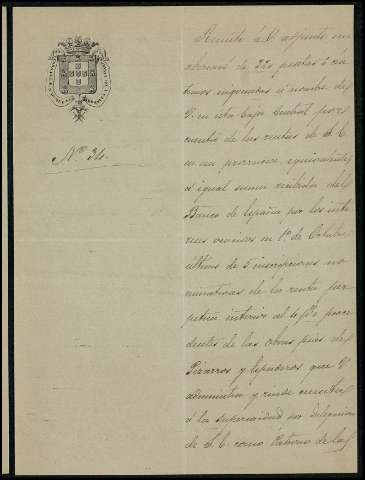 Nº 34.
Remito á V. adjunto un
abonaré de 220 pesetas 6 cén
timos ingresadas á nombre de
V. en esta Caja Central por
cuenta de las rentas de S. E.
en esa provincia, equivalentes
á igual suma recibida del
Banco de España por los inte
reses vencidos en 1º de Octubre
último de 5 inscripciones no
minativas de la renta per
petua interior al 4 p% proce
dentes de las obras pías de
Pizarros y que V.
administra y rinde cuentas
á la superioridad por delegación
de S. E. como Patrono de las